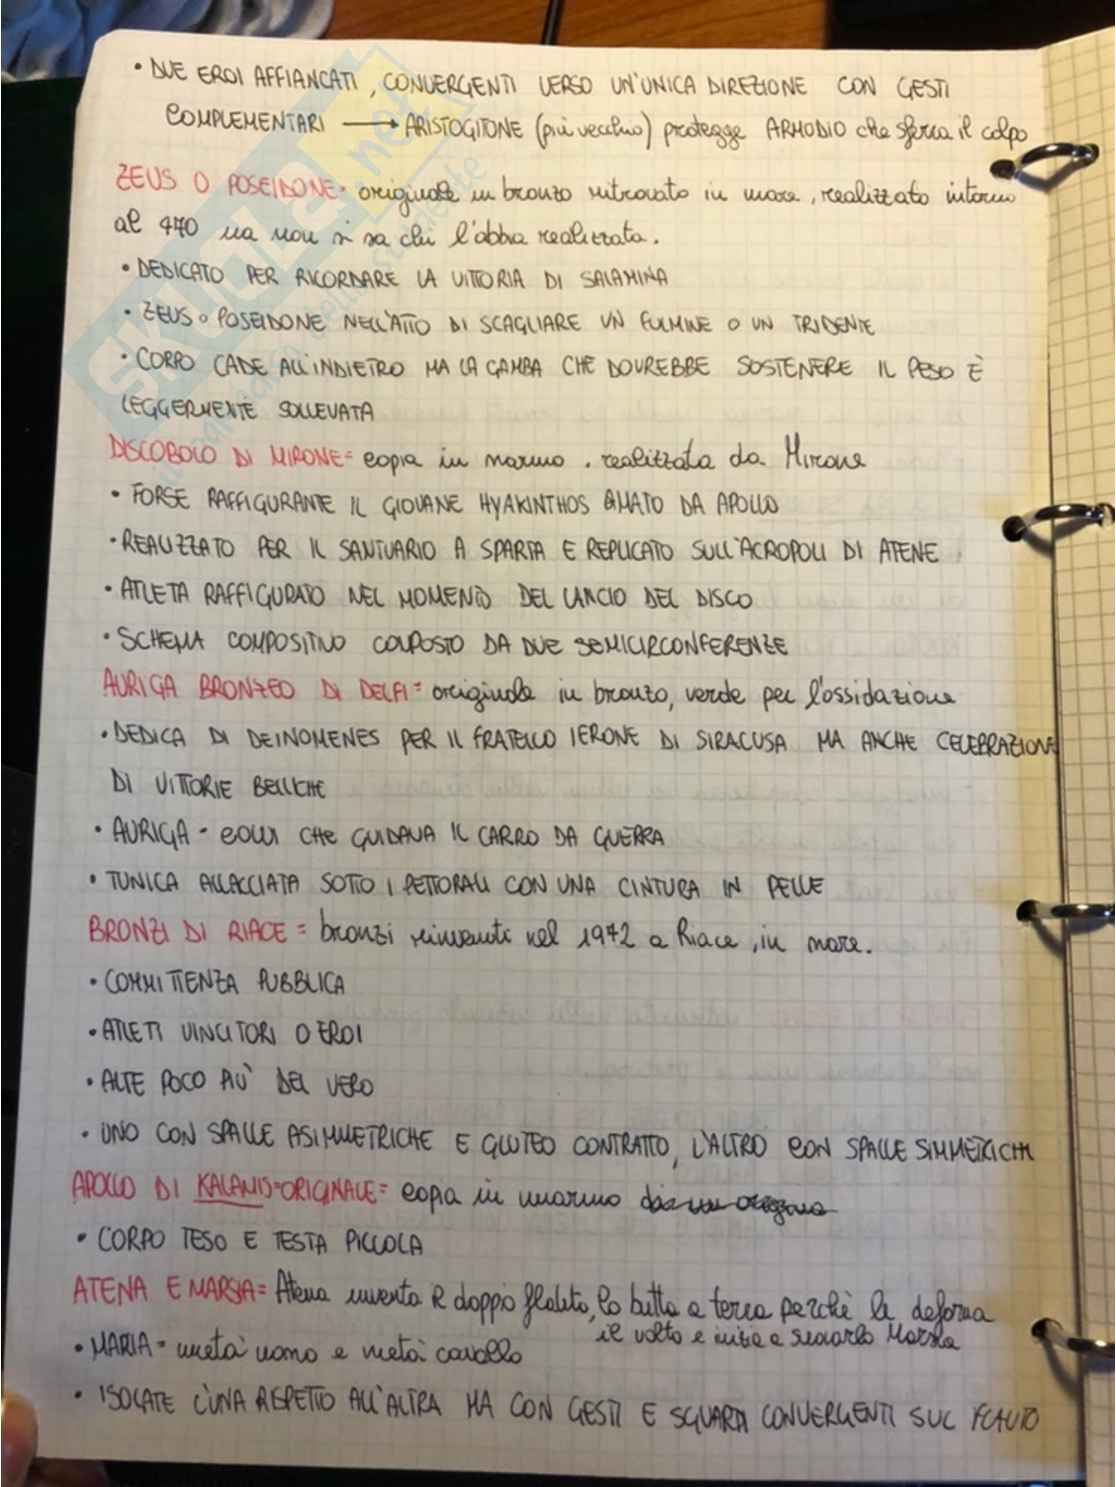 • DUE EROI AFFIANCATI, CONVERGENTI VERSO UN'UNICA DIREZIONE CON GESTI
COMPLEMENTARI → ARISTOGITONE (più vecchio) protegge ARMODIO che sferra il colpo
ZEUS O POSEIDONE= originale in bronzo ritrovato in mare, realizzato intorno
al 470 ma non si sa chi l'abbia realizzata.
• DEDICATO PER RICORDARE LA VITTORIA DI SALAMINA
• ZEUS o POSEIDONE NELL'ATTO DI SCAGLIARE UN FULMINE O UN TRIDENTE
• CORPO CADE ALL'INDIETRO MA LA GAMBA CHE DOVREBBE SOSTENERE IL PESO È
LEGGERMENTE SOLLEVATA
DISCOBOLO DI MIRONE= copia in marmo. realizzata da Mirone
• FORSE RAFFIGURANTE IL GIOVANE HYAKINTHOS AMATO DA APOLLO
• REALIZZATO PER IL SANTUARIO A SPARTA E REPLICATO SULL'ACROPOLI DI ATENE
• ATLETA RAFFIGURATO NEL MOMENTO DEL LANCIO DEL DISCO
• SCHEMA COMPOSITIVO COMPOSTO DA DUE SEMICIRCONFERENZE
AURIGA BRONZEO DI DELFI= originale in bronzo, verde per l'ossidazione
• DEDICA DI DEINOMENES PER IL FRATELLO IERONE DI SIRACUSA MA ANCHE CELEBRAZIONE
DI VITTORIE BELLICHE
• AURIGA = COLUI CHE GUIDAVA IL CARRO DA GUERRA
• TUNICA ALLACCIATA SOTTO I PETTORALI CON UNA CINTURA IN PELLE
BRONZI DI RIACE = bronzi rinvenuti nel 1972 a Riace, in mare.
• COMMITTENZA PUBBLICA
• ATLETI VINCITORI O EROI
• ALTE POCO PIÙ DEL VERO
• UNO CON SPALLE ASIMMETRICHE E GLUTEO CONTRATTO, L'ALTRO CON SPALLE SIMMETRICHE
APOLLO DI KALAMIS=ORIGINALE= copia in marmo
• CORPO TESO E TESTA PICCOLA
ATENA E MARSIA= Atena inventa il doppio flauto, lo butta a terra perchè le deforma
il volto e inizia a suonarlo Marsia
• MARIA = metà uomo e metà cavallo
• ISOLATE L'UNA RISPETTO ALL'ALTRA MA CON GESTI E SGUARDI CONVERGENTI SUL FLAUTO
SKUOLA.net